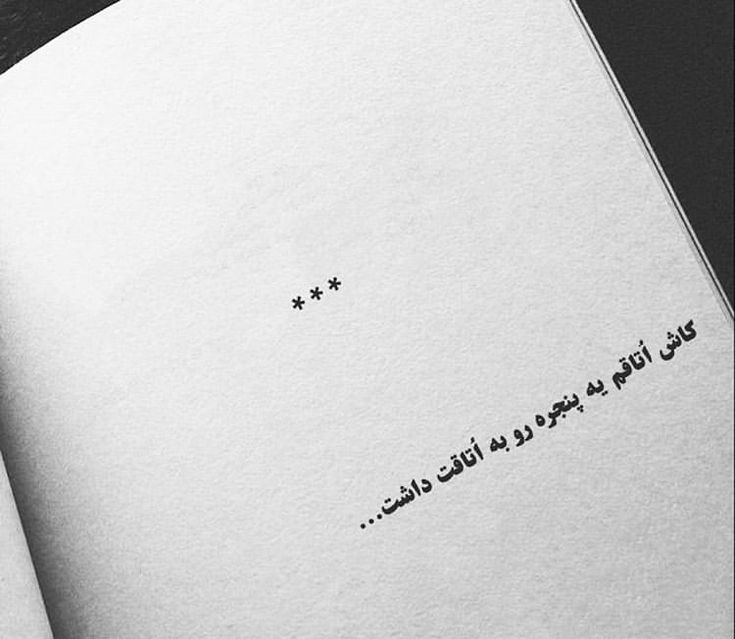 ***
کاش اُتاقم یه پنجره رو به اُتاقت داشت...